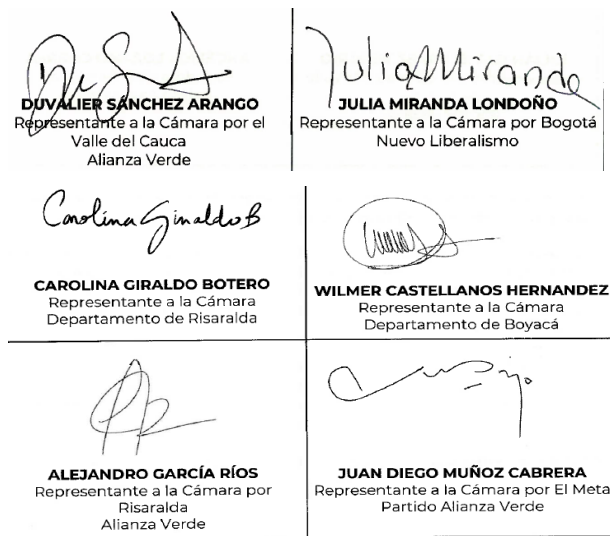 Julia Miranda
DUVALIER SÁNCHEZ ARANGO
Representante a la Cámara por el
Valle del Cauca
Alianza Verde
JULIA MIRANDA LONDOÑO
Representante a la Cámara por Bogotá
Nuevo Liberalismo
Carolina Giraldo B
CAROLINA GIRALDO BOTERO
Representante a la Cámara
Departamento de Risaralda
WILMER CASTELLANOS HERNANDEZ
Representante a la Cámara
Departamento de Boyacá
ALEJANDRO GARCÍA RÍOS
Representante a la Cámara por
Risaralda
Alianza Verde
JUAN DIEGO MUÑOZ CABRERA
Representante a la Cámara por El Meta
Partido Alianza Verde